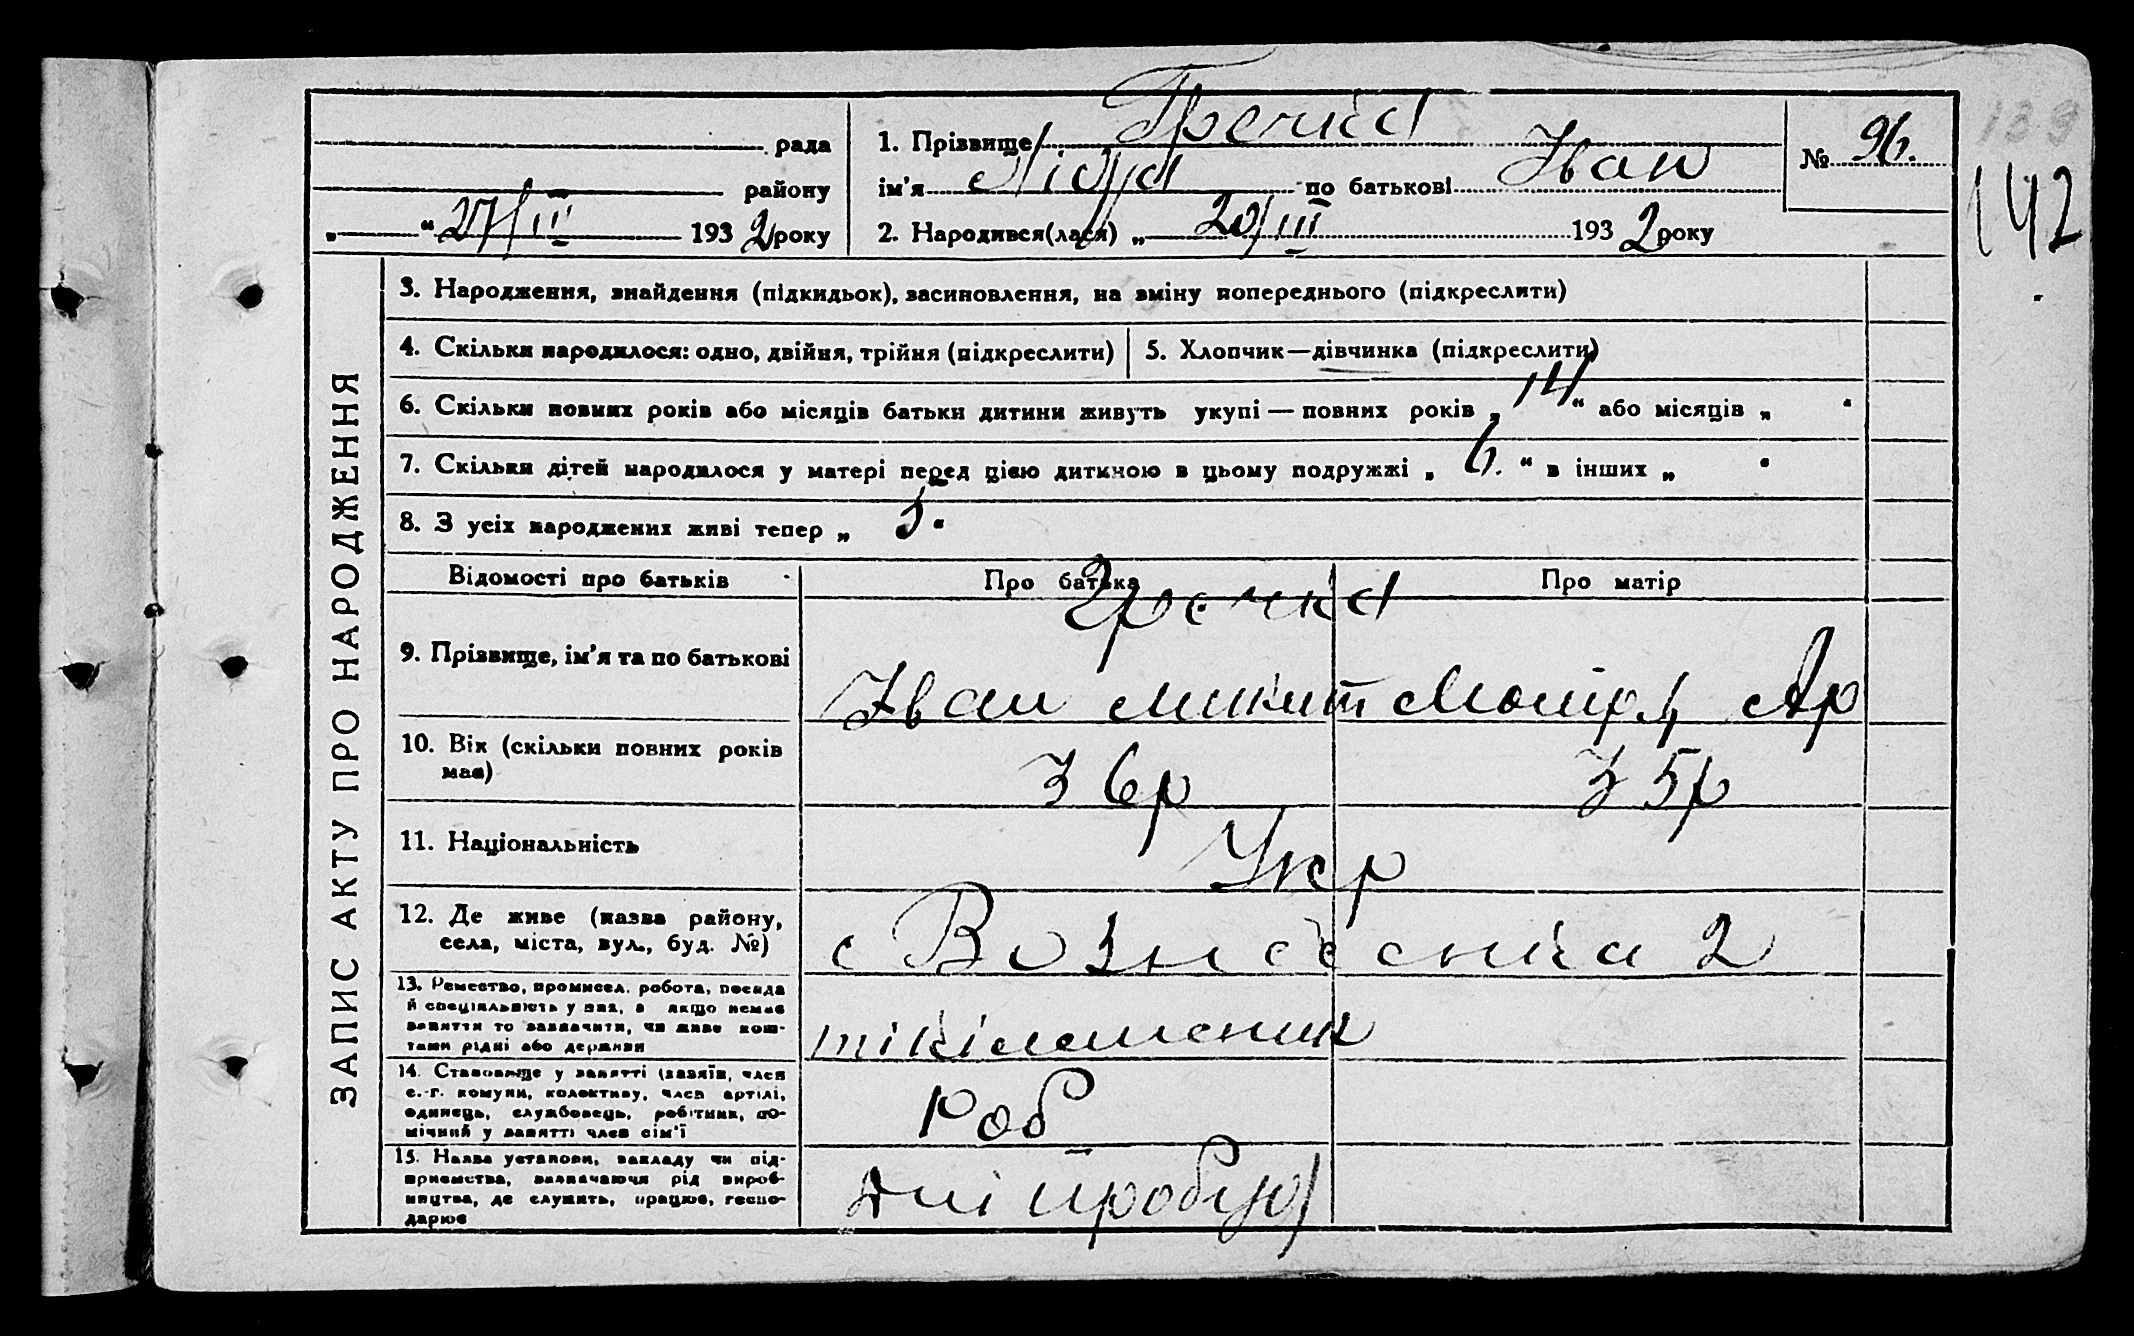 рада
району
„ “ 27/III 1932 року
1. Прізвище Гречка
ім’я Лідія по батькові Іван
2. Народився(лася) „ 20/III 1932 року
№ 96.
142
ЗАПИС АКТУ ПРО НАРОДЖЕННЯ
3. Народження, знайдення (підкидьок), засиновлення, на зміну попереднього (підкреслити)
4. Скільки народилося: одно, двійня, трійня (підкреслити)
5. Хлопчик—дівчинка (підкреслити)
6. Скільки повних років або місяців батьки дитини живуть укупі — повних років „ 14 “ або місяців „ “
7. Скільки дітей народилося у матері перед цією дитиною в цьому подружжі „ 6. “ в інших „ “
8. З усіх народжених живі тепер „ 5 “
Відомості про батьків
Про батька
Про матір
9. Прізвище, ім’я та по батькові
Гречка
Іван Микит
Ар
10. Вік (скільки повних років
має)
36р
35р
11. Національність
Укр
12. Де живе (назва району,
села, міста, вул., буд. №)
с Вознесенка 2
13. Ремество, промисел, робота, посада
й спеціяльність у них, а якщо немає
заняття то зазначити, чи живе кош-
тами рідні або держави
14. Становище у занятті (хазяїн, член
с.-г. комуни, колективу, член артілі,
одинець, службовець, робітник, по-
мічний у занятті член сім’ї
Роб
15. Назва установи, закладу чи під-
приємства, зазначаючи рід вироб-
ництва, де служить, працює, госпо-
дарює